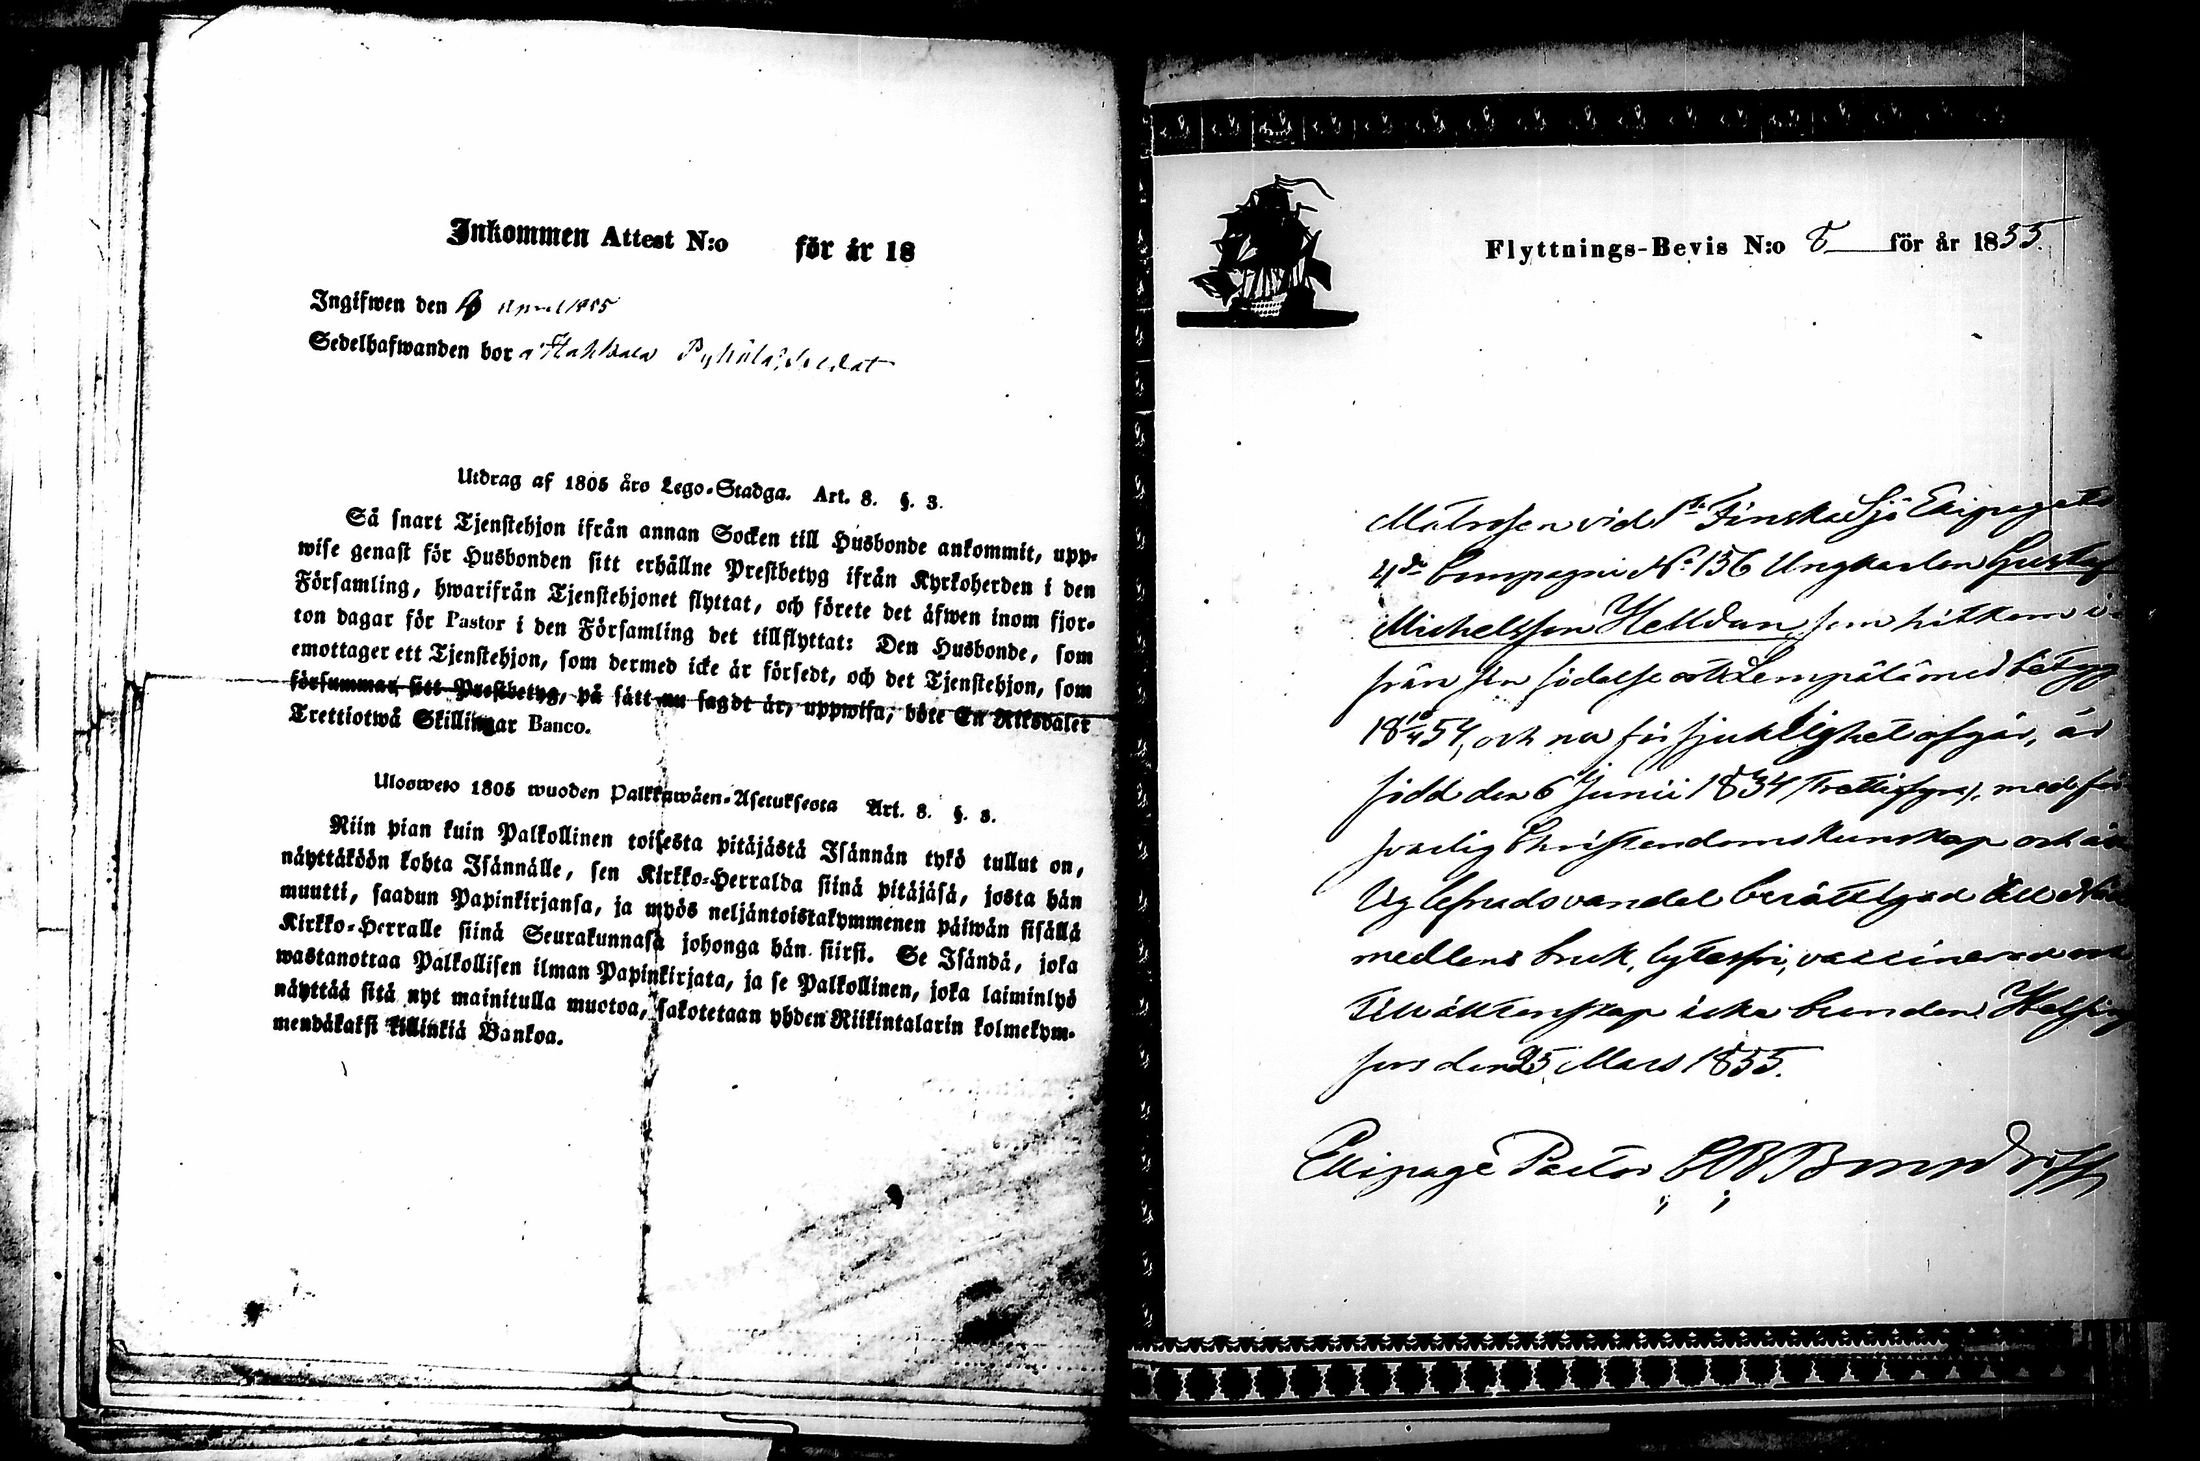 Inkommen Attest N:o för år 18
Ingifwen den April 1855
Sedelhafwanden bor Pyhölä, Soldat
Utdrag af 1805 års Lego-Stadga. Art. 8. §. 3.
Så snart Tjenstehjon ifrån annan Socken till Husbonde ankommit, upp-
wise genast för Husbonden sitt erhållne Prestbetyg ifrån Kyrkoherden i den
Församling, hwarifrån Tjenstehjonet flyttat, och förete det äfwen inom fjor-
ton dagar för Pastor i den Församling det tillflyttat: Den Husbonde, som
emottager ett Tjenstehjon, som dermed icke är försedt, och det Tjenstehjon, som
försummar sitt Prestbetyg, på sätt nu sagdt är, uppwisa, böte En Riksdaler
Trettiotwå Skillingar Banco.
Ulosweto 1805 wuoden Palkkawäen-Asetuksesta Art. 8. §. 3.
Niin pian kuin Palkollinen toisesta pitäjästä Isännän tykö tullut on,
näyttäköön kohta Isännälle, sen Kirkko-Herralda siinä pitäjäsä, josta hän
muutti, saadun Papinkirjansa, ja myös neljäntoistakymmenen päiwän sisällä
Kirkko-Herralle siinä Seurakunnasa johonga hän siirsi. Se Isändä, joka
wastanottaa Palkollisen ilman Papinkirjata, ja se Palkollinen, joka laiminlyö
näyttää sitä nyt mainitulla muotoa, sakotetaan yhden Riikintalarin kolmekym-
mendäkaksi killinkiä Bankoa.
Flyttnings-Bevis N:o 8 för år 1855.
Matrosen vid 1sta Finska Sjö Ekipagets
4de Compagni No 156 Ungkarlen Gustaf
Michelsson Helldan, som hitkom i-
från sin födelse ort Lempälä med betyg
18 10/4 54, och nu för sjuklighet afgår, är
född den 6 Junii 1834 (trettifyra), med för
svarlig Christendomskunskap och är
lig lefnadsvandel berättigad till Nåd
medlens bruk, lytesfri, vaccinerad och
till äktenskap icke bunden. Helsing
fors den 25 Mars 1855.
Ekipage Pastor